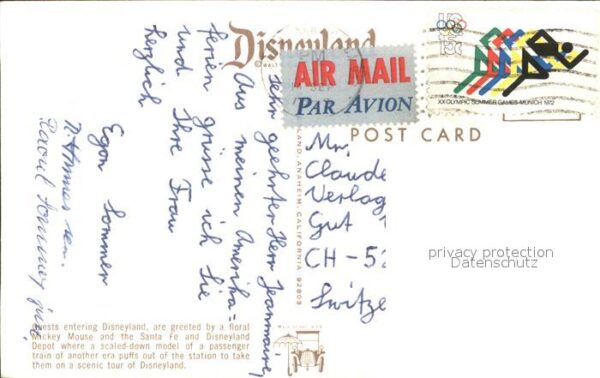 Disneyland
PM
SEP
AIR MAIL
PAR AVION
US
XX OLYMPIC SUMMER GAMES MUNICH 1972
POST CARD
Sehr geehrter Herr Jeanmaire,
Aus meinen Amerika=
ferien grüsse ich Sie
und Ihre Frau
herzlich
Egon Sommer
Mr.
Claude
Verlag
Gut
CH-52
Switze
privacy protection
Datenschutz
LAND, ANAHEIM, CALIFORNIA 92803
Guests entering Disneyland, are greeted by a floral
Mickey Mouse and the Santa Fe and Disneyland
Depot where a scaled-down model of a passenger
train of another era puffs out of the station to take
them on a scenic tour of Disneyland.